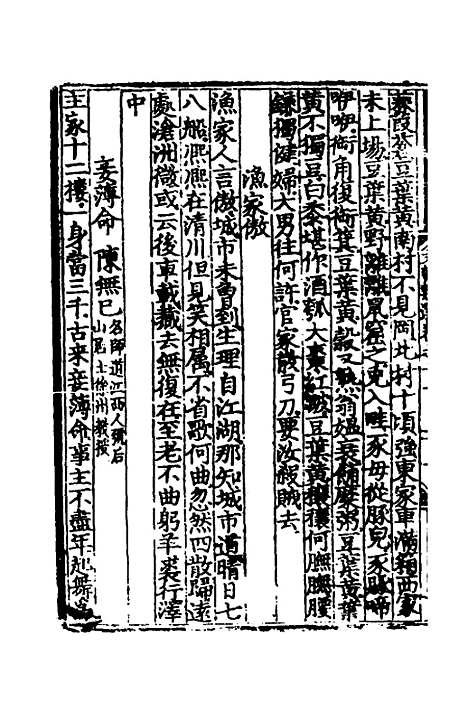 葵豆葉黃南村不見岡北村十頃強東家車滿箱西家
未上場豆葉黃野離離鼠窟之兎入畦豕母從豚兒豕啼
咿咿衘角復衘箕豆葉黃穀又熟翁媼衰餔糜粥豆葉黃葉
黃不獨豆白黍堪作酒瓠大棗紅皺豆葉黃穰穰何膴膴腰
鎌獨健婦大男往何許官家散弓刀要汝殺賊去
漁家傲
漁家人言傲城市未曽到生理自江湖那知城市道晴日七
八船熈熈在清川但見笑相屬不省歌何曲忽然四散歸遠
處滄洲微或云後車載藏去無復在至老不曲躬羊裘行澤
中
妾薄命 陳無已名師道江西人號后山居士徐州教授
主家十二樓一身當三千古來妾薄命事主不盡年起舞爲